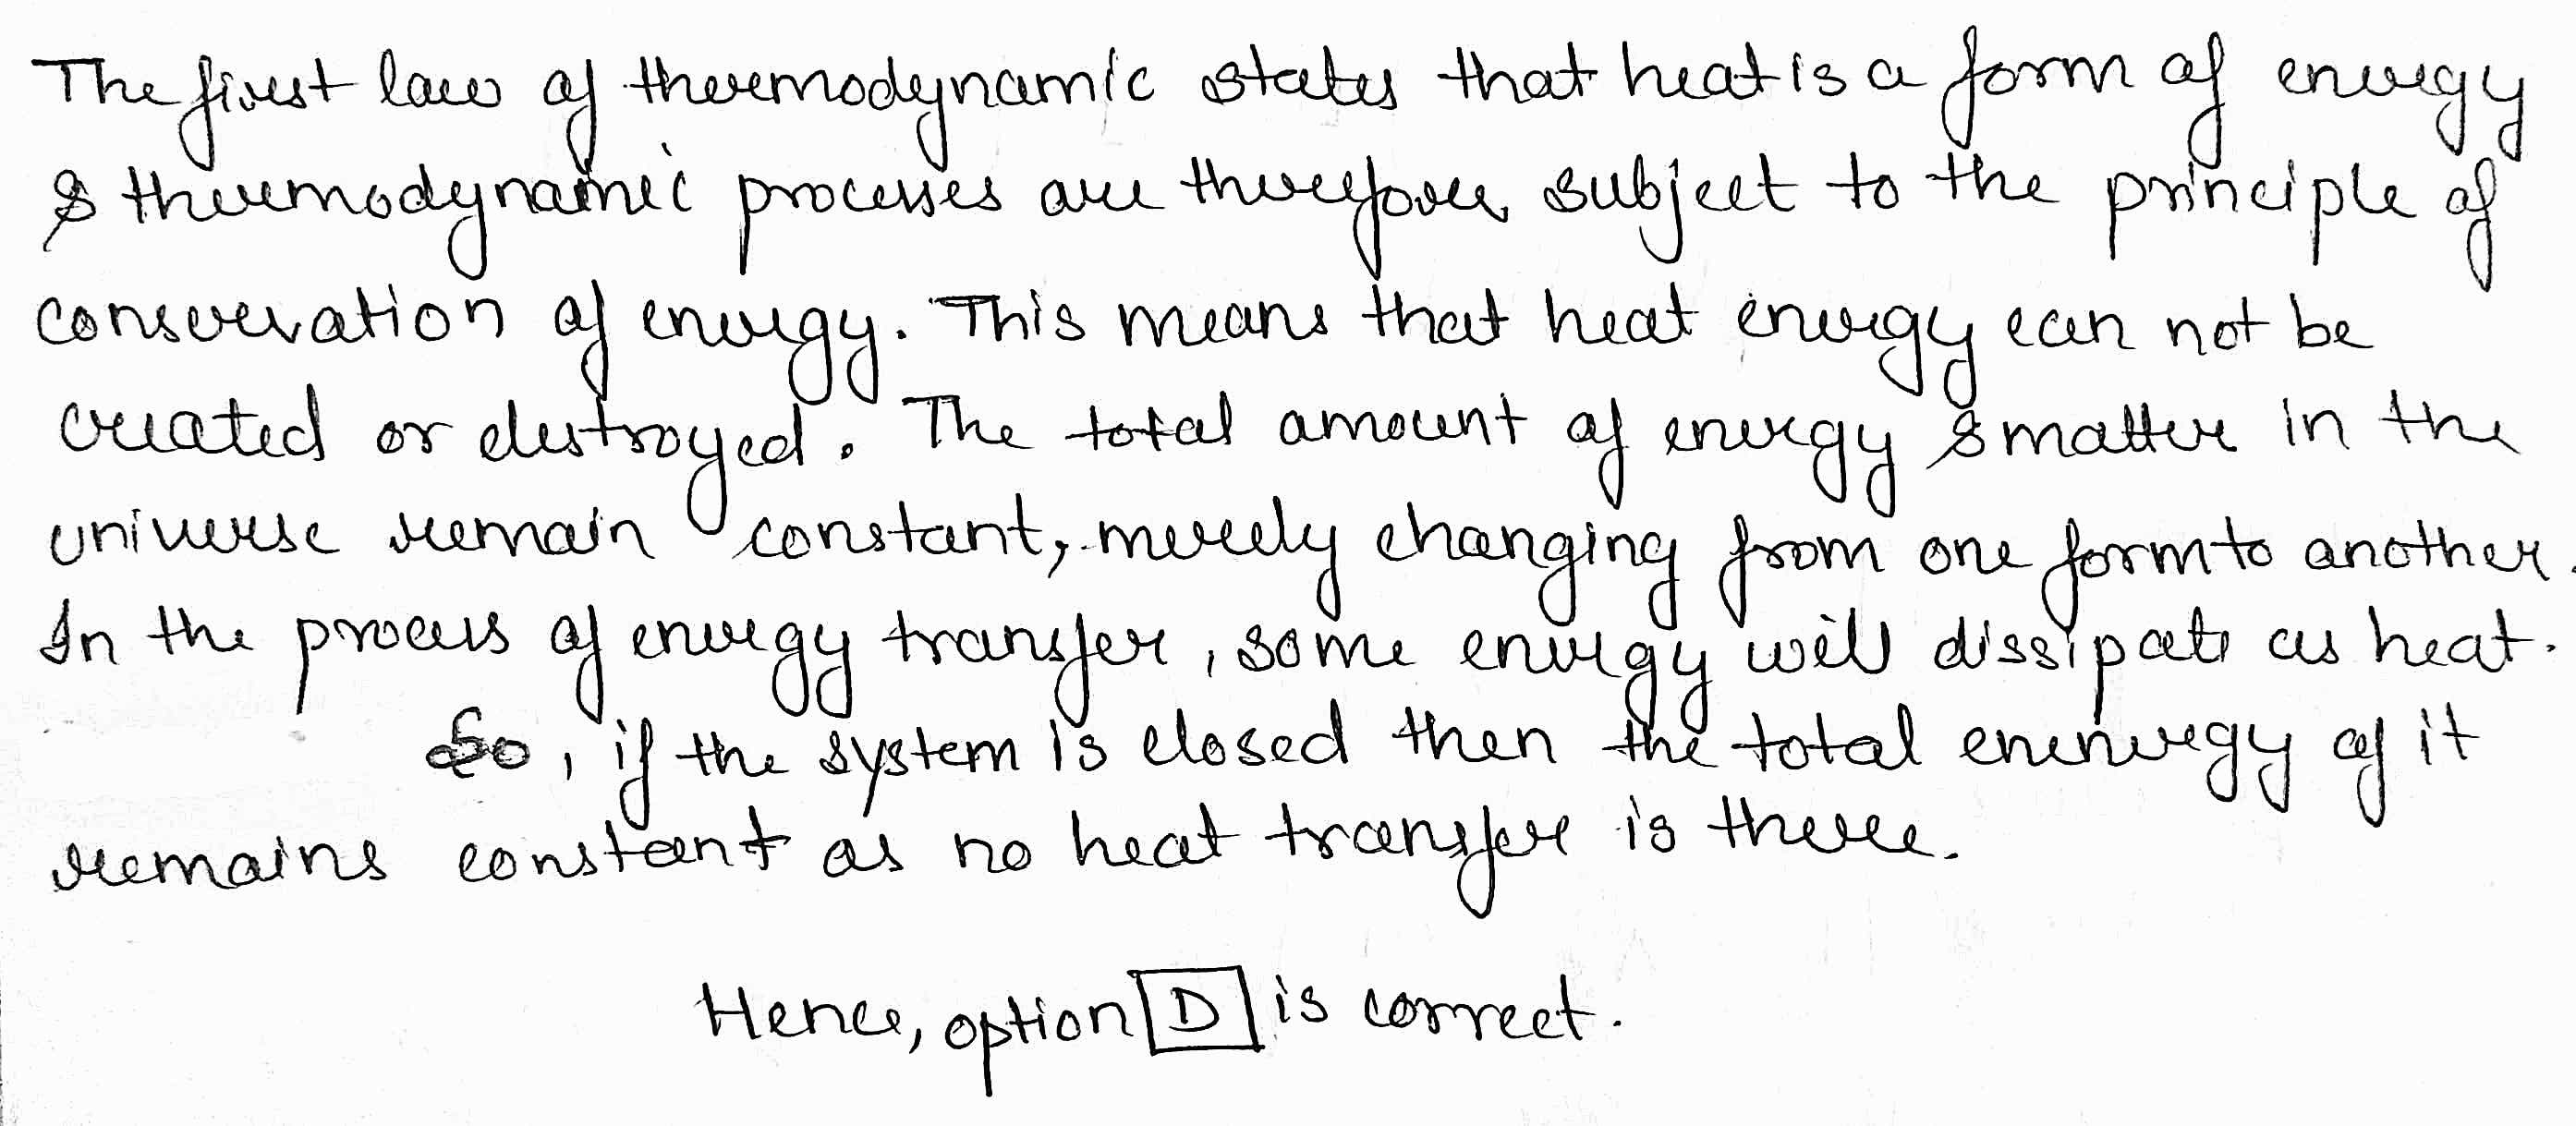 The first law of thermodynamic states that heat is a form of energy
& thermodynamic processes are therefore subject to the principle of
conservation of energy. This means that heat energy can not be
created or destroyed. The total amount of energy & matter in the
universe remain constant, merely changing from one form to another.
In the process of energy transfer, some energy will dissipate as heat.
So, if the system is closed then the total enenergy of it
remains constant as no heat transfer is there.
Hence, option D is correct.